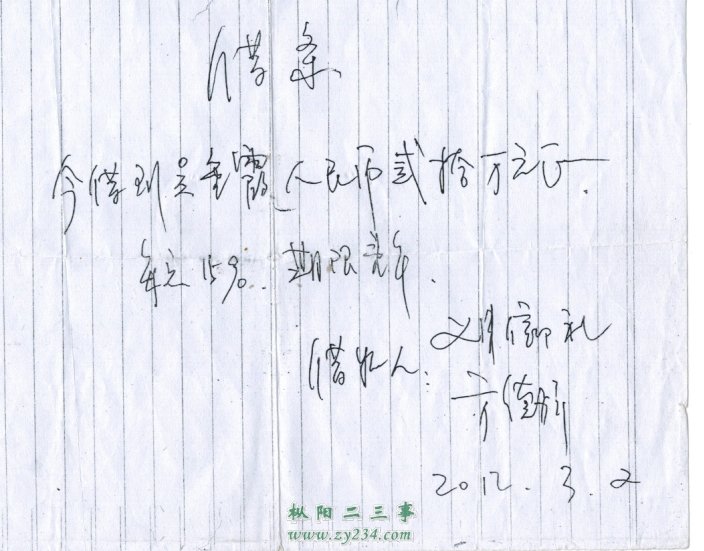 借条
今借到吴金霞人民币贰拾万元正.
年息15%. 期限壹年.
借款人:
2012.3.2
枞阳二三事
www.zy234.com